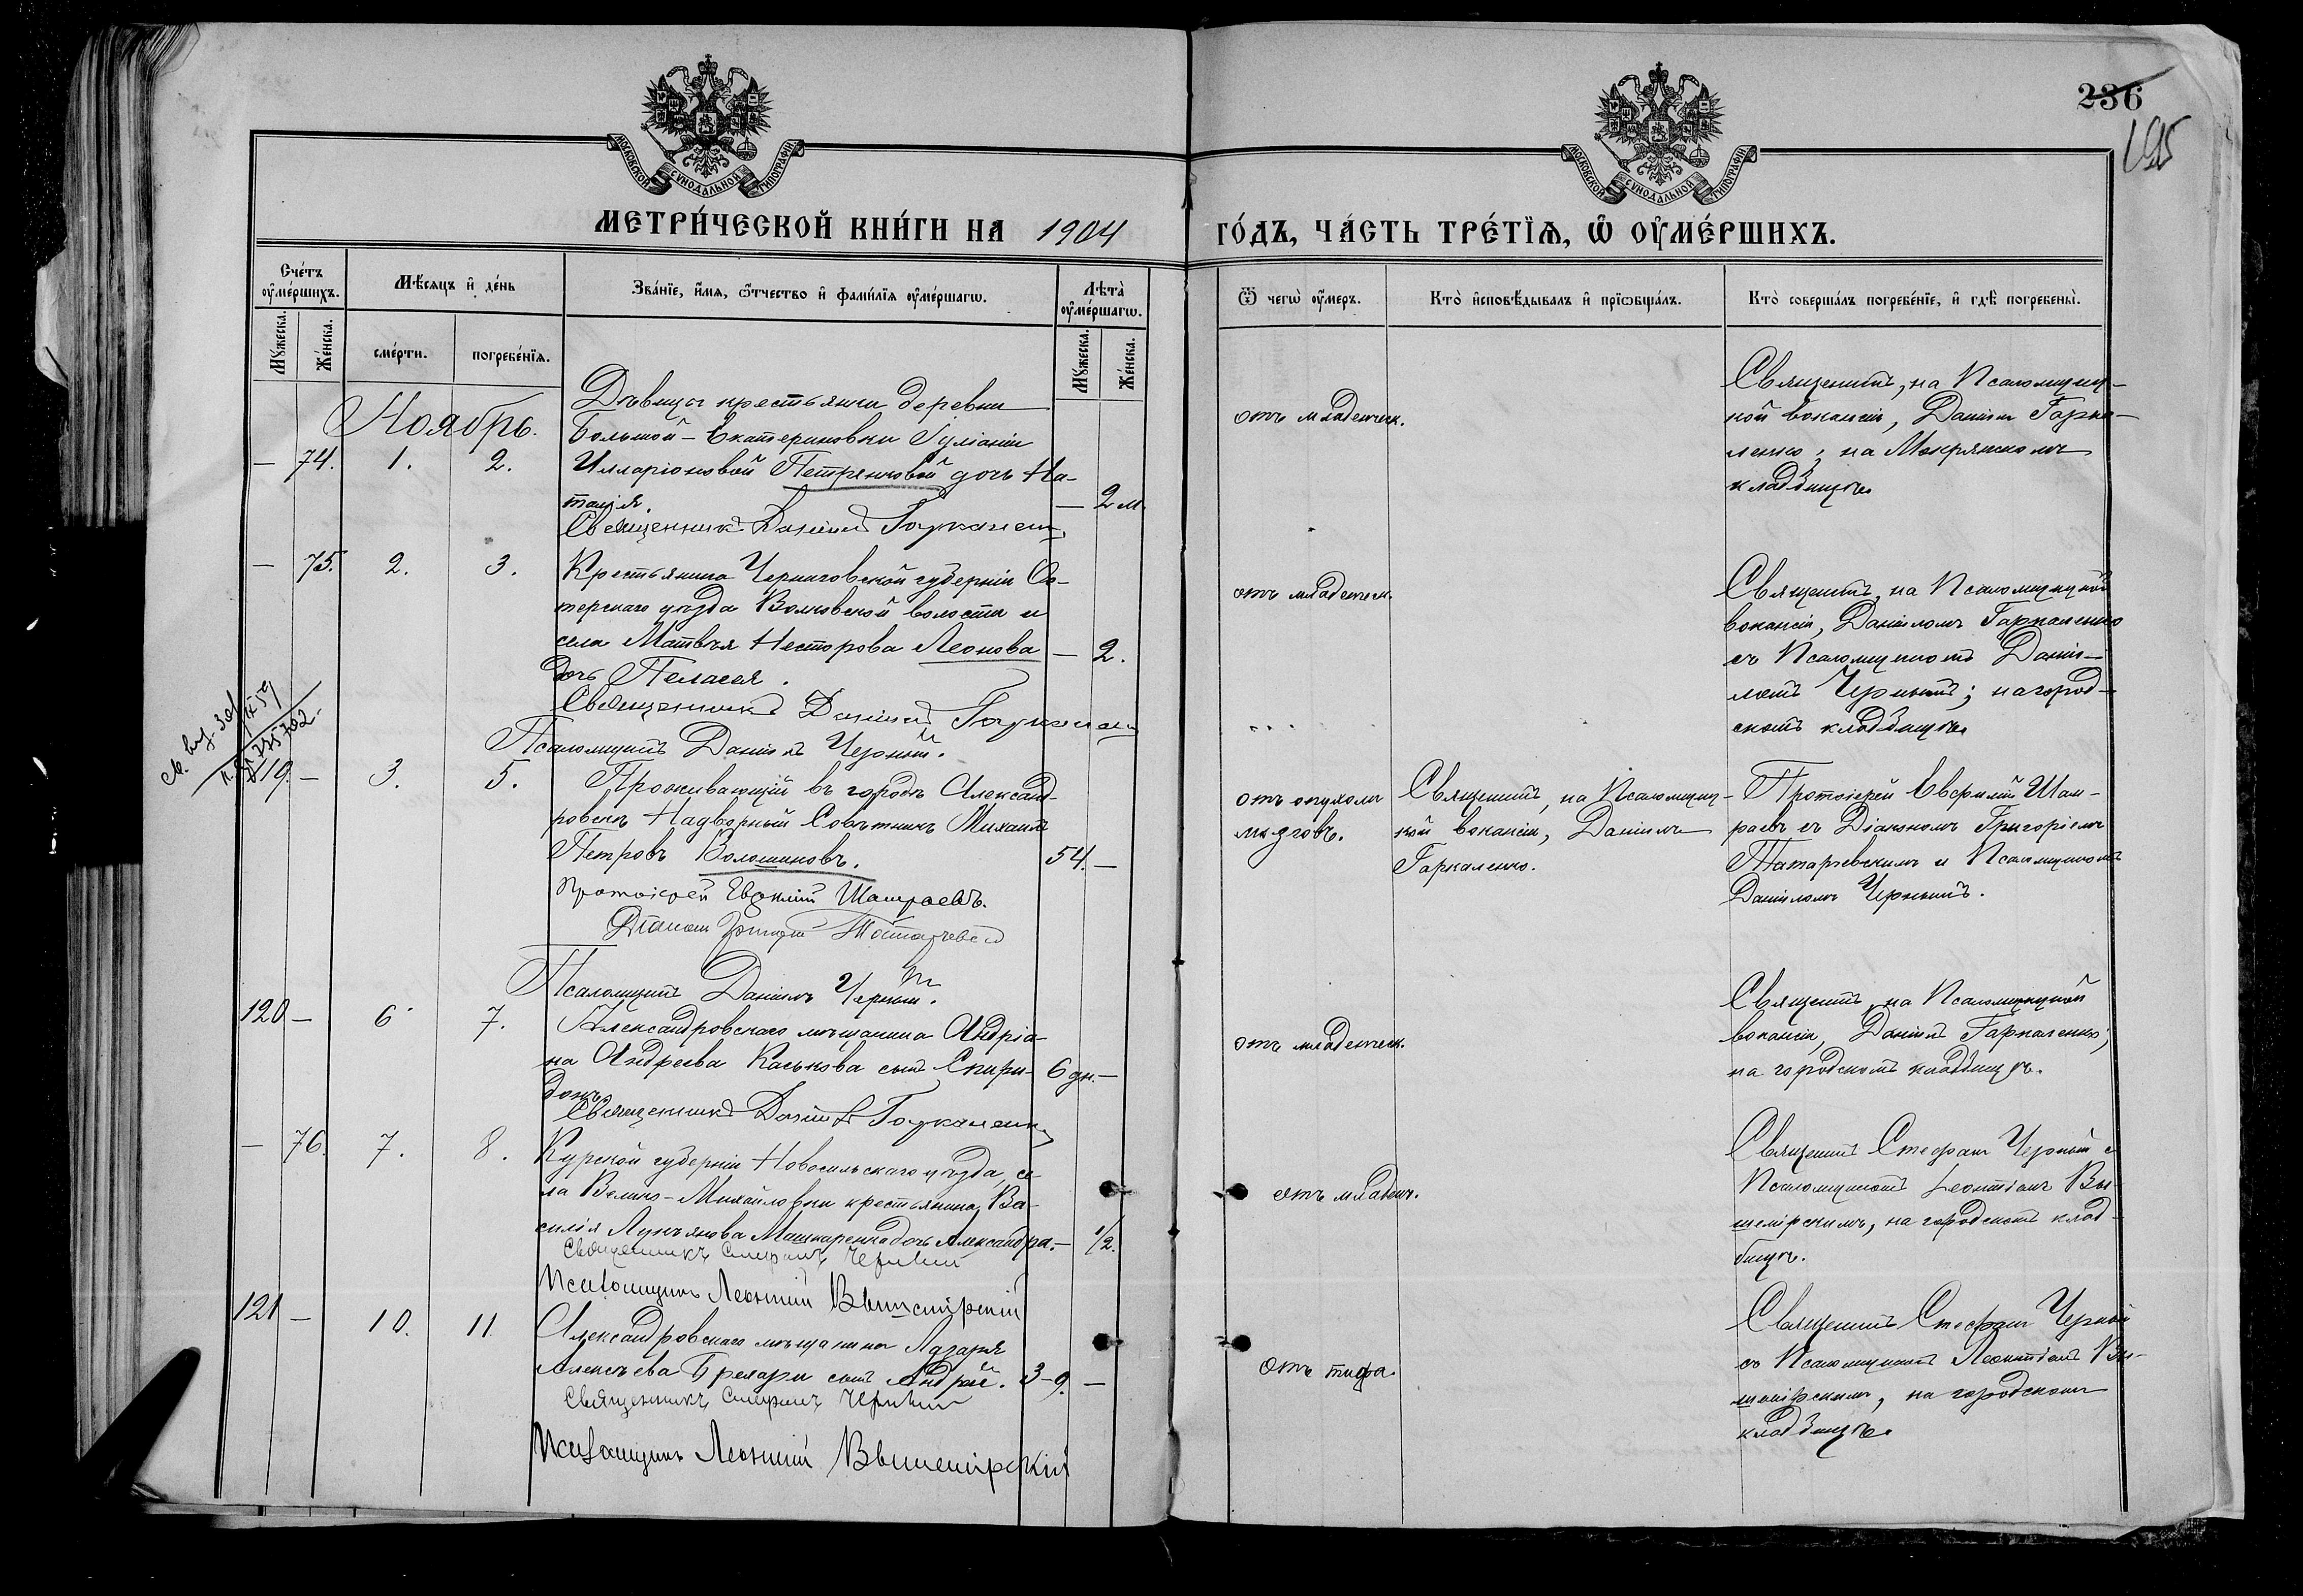 236
195
МОСКОВСКОЙ СѴНОДАЛЬНОЙ ТИПОГРАФІИ
МОСКОВСКОЙ СѴНОДАЛЬНОЙ ТИПОГРАФІИ
МЕТРИ́ЧЕСКОЙ КНИ́ГИ НА 1904 ГО́ДЪ, ЧА́СТЬ ТРЕ́ТЇѦ, Ѡ ОУМЕ́РШИХЪ.
Сче́тъ оуме́ршихъ.
Мꙋжеска.
Же́нска.
Мѣсѧцъ и де́нь
сме́рти.
погребе́нїѧ.
Зва́нїе, и́мѧ, ѻ́тчество и фами́лїѧ оуме́ршагѡ.
Лѣта̀ оуме́ршагѡ.
Мꙋжеска.
Же́нска.
Ѿ чегѡ̀ оу́меръ.
Кто̀ исповѣ́дывалъ и прїѡбща́лъ.
Кто̀ соверша́лъ погребе́нїе, и гдѣ̀ погребены̀.
Ноябрь.
— 74. 1. 2.
Дѣвицы крестьянки деревни
Большой-Екатериновки Іуліаніи
Илларіоновой Петренковой дочь На-
талія. — 2 м.
Священникъ Даніилъ Гаркаленко
отъ младенческ.
Священникъ, на Псаломщиц-
кой вакансіи, Даніилъ Гарка-
ленко; на Мокрянскомъ
кладбищѣ.
— 75. 2. 3.
Крестьянина Черниговской губерніи Ос-
терскаго уѣзда Волковской волости и
села Матвѣя Несторова Леонова — 2.
дочь Пелагея.
Священникъ Даніилъ Гаркаленко
Псаломщикъ Даніилъ Черный.
отъ младенческ.
Священникъ, на Псаломщицкой
вакансіи, Даніиломъ Гаркаленко
съ Псаломщикомъ Даніи-
ломъ Чернымъ; на город-
скомъ кладбищѣ.
119. — 3. 5.
Проживающій въ городѣ Александ-
ровскѣ Надворный Совѣтникъ Михаилъ
Петровъ Волошиновъ. 54. —
Протоіерей Евфимій Шамраевъ.
Діаконъ Григорій Татарчевскій
Псаломщикъ Даніилъ Черный.
отъ опухоли
мозговъ.
Священникъ, на Псаломщиц-
кой вакансіи, Даніилъ
Гаркаленко.
Протоіерей Евфимій Шам-
раевъ съ Діакономъ Григоріемъ
Татарчевскимъ и Псаломщикомъ
Даніиломъ Чернымъ.
120 — 6 7.
Александровскаго мѣщанина Андріа-
на Андреева Каськова сынъ Спири- 6 дн. —
донъ.
Священникъ Даніилъ Гаркаленко
отъ младенческ.
Священникъ, на Псаломщицкой
вакансіи, Даніилъ Гаркаленко;
на городскомъ кладбищѣ.
— 76. 7. 8.
Курской губерніи Новосильскаго уѣзда, се-
ла Велико-Михайловки крестьянина Ва-
силія Лукьянова Машкаренка дочь Александра. — 1/2.
Священникъ Стефанъ Черный
Псаломщикъ Леонтій Вышемірскій
отъ младенч.
Священникъ Стефанъ Черный съ
Псаломщикомъ Леонтіемъ Вы-
шемірскимъ, на городскомъ клад-
бищѣ.
121 — 10. 11.
Александровскаго мѣщанина Лазаря
Алексѣева сынъ Андрей. 3-9. —
Священникъ Стефанъ Черный
Псаломщикъ Леонтій Вышемірскій
Отъ тифа.
Священникъ Стефанъ Черный
съ Псаломщикомъ Леонтіемъ Вы-
шемірскимъ, на городскомъ
кладбищѣ.